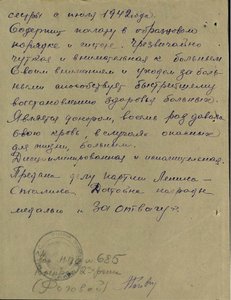 сестры с июля 1942 года.
Содержит палату в образцовом
порядке и чистоте. Чрезвычайно
чуткая и внимательная к больным
Своим вниманием и уходом за боль-
ными способствует быстрейшему
востоновлению здоровья больных.
Является донором, восемь раз давала
свою кровь, в опасных
для жизни, больным.
Дисциплинированная и исполнительная.
Предана делу партии Ленина-
Сталина. Достойна награды
медалью „За отвагу".
685